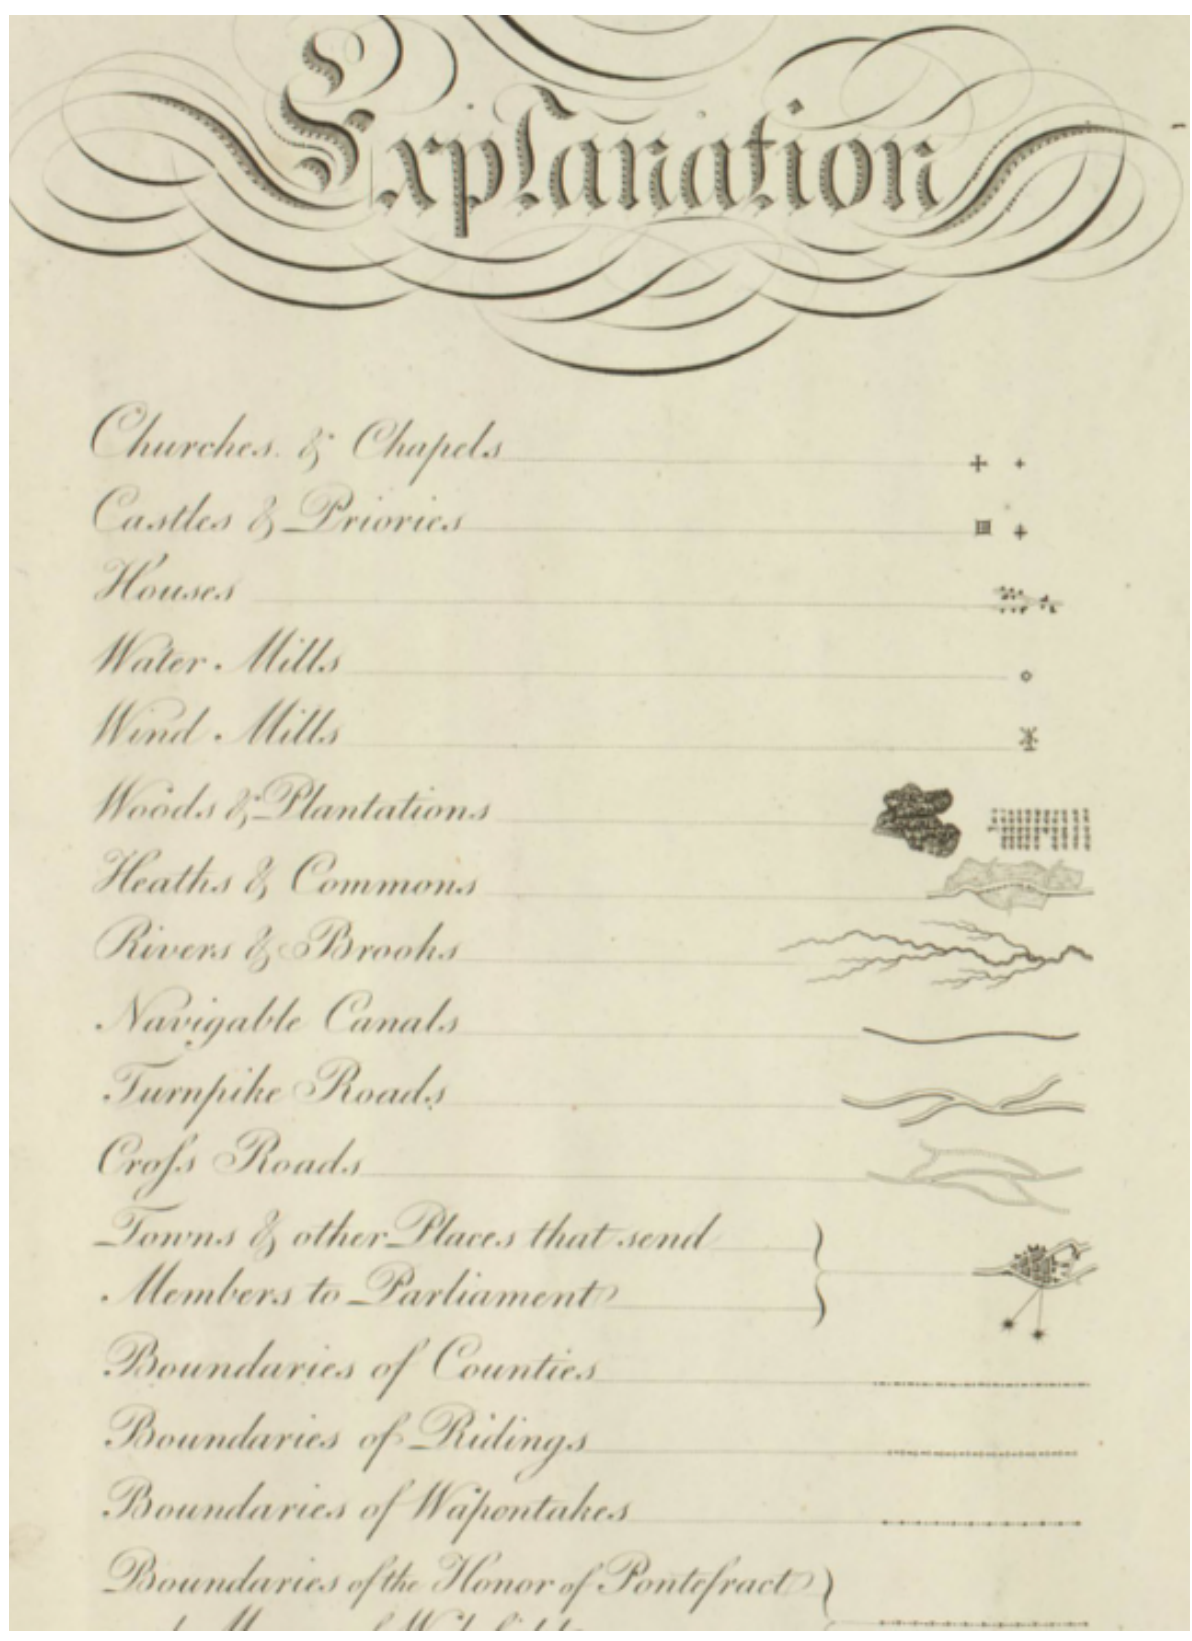 Explanation
Churches. & Chapels
Castles & Priories
Houses
Water Mills
Wind Mills
Woods & Plantations
Heaths & Commons
Rivers & Brooks
Navigable Canals
Turnpike Roads
Croſs Roads
Towns & other Places that send
Members to Parliament
Boundaries of Counties
Boundaries of Ridings
Boundaries of Wapontakes
Boundaries of the Honor of Pontefract